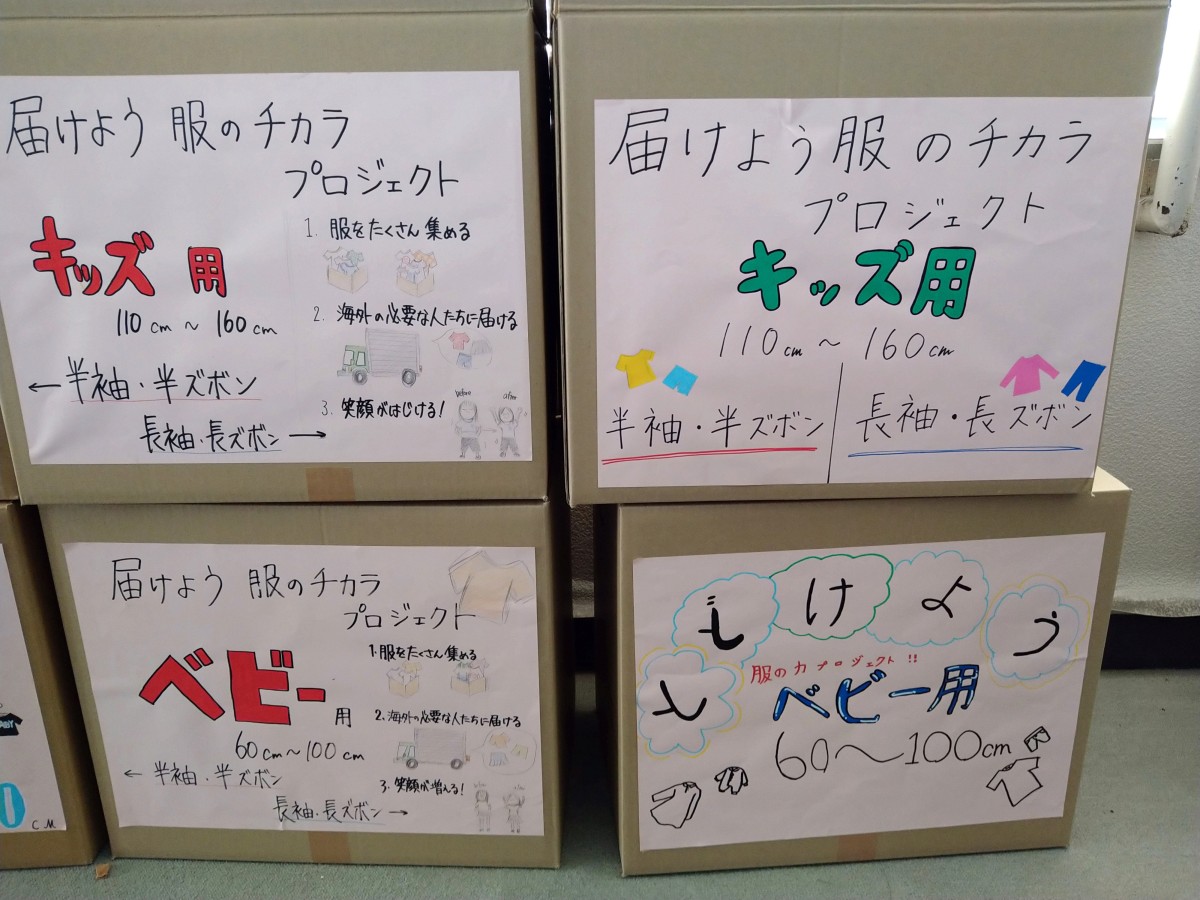 届けよう 服のチカラ
プロジェクト
キッズ用
110cm～160cm
←半袖・半ズボン
長袖・長ズボン→
1. 服をたくさん集める
2. 海外の必要な人たちに届ける
3. 笑顔がはじける!
before after
届けよう服のチカラ
プロジェクト
キッズ用
110cm～160cm
半袖・半ズボン
長袖・長ズボン
届けよう 服のチカラ
プロジェクト
ベビー用
60cm～100cm
←半袖・半ズボン
長袖・長ズボン→
1.服をたくさん集める
2.海外の必要な人たちに届ける
3.笑顔が増える!
とどけよう
服の力プロジェクト!!
ベビー用
60～100cm
0cm